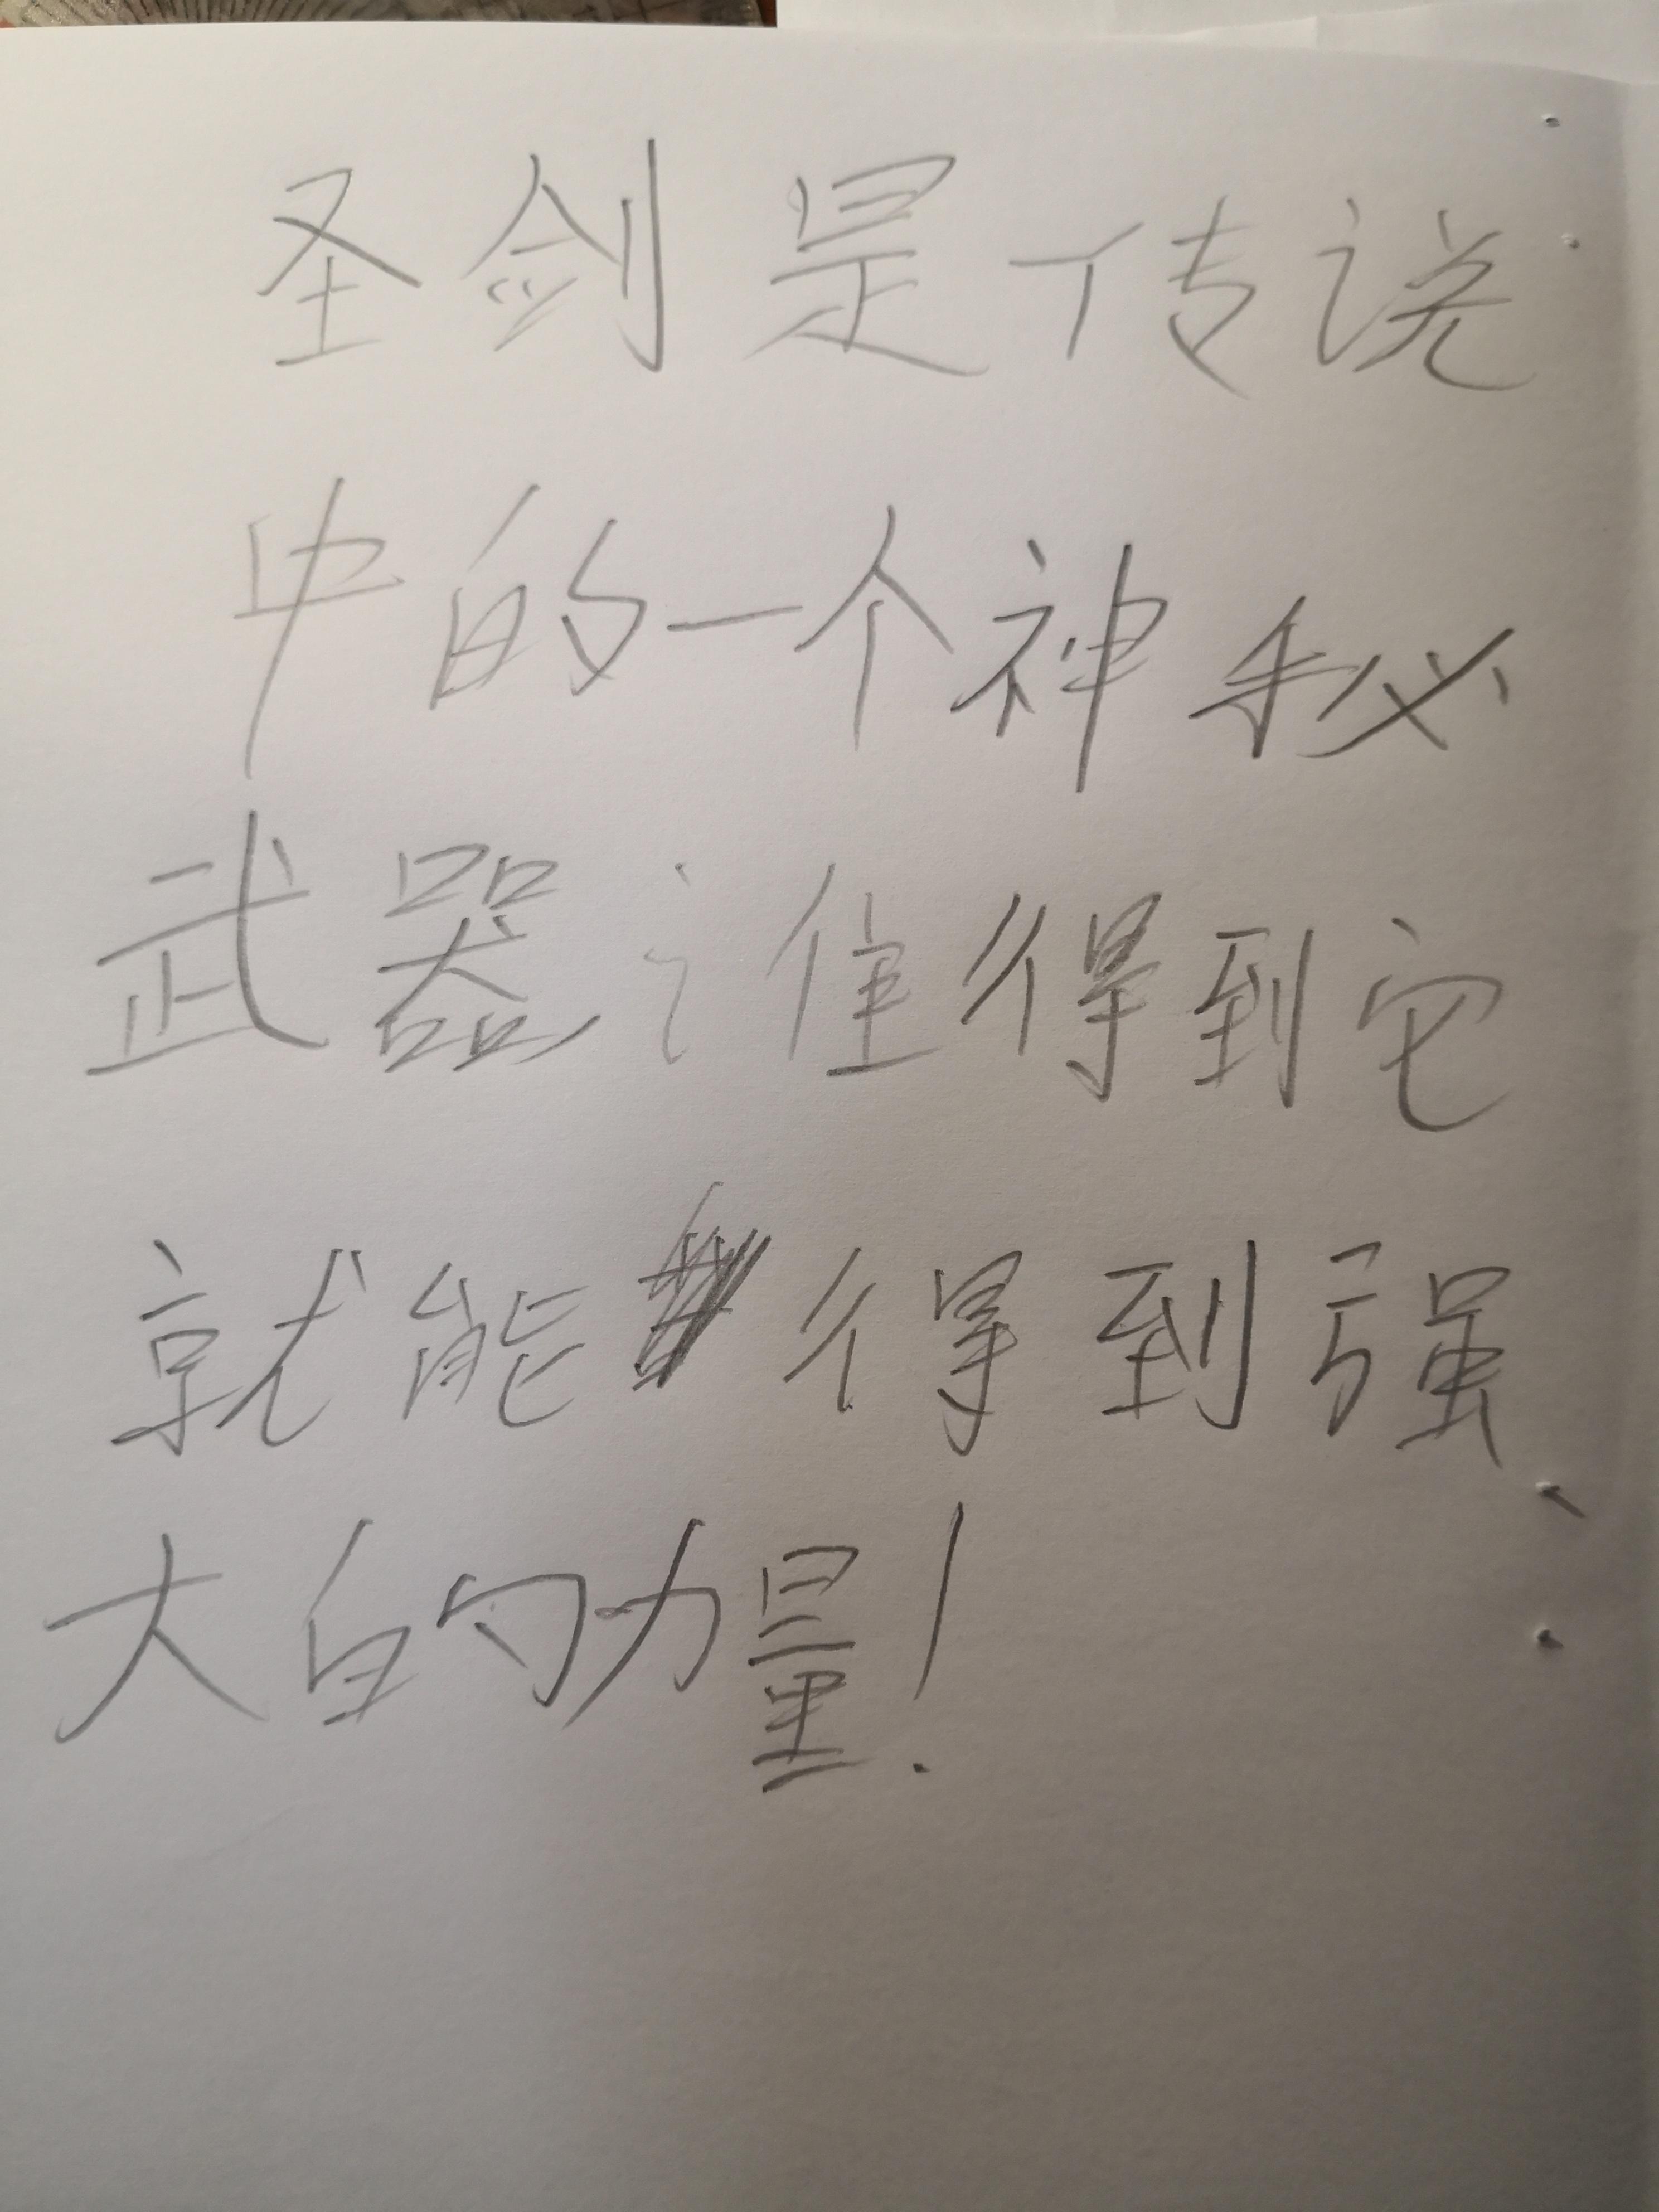 圣剑是传说
中的一个神秘
武器谁得到它
就能得到强
大的力量!